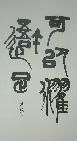 可以濯
吾足